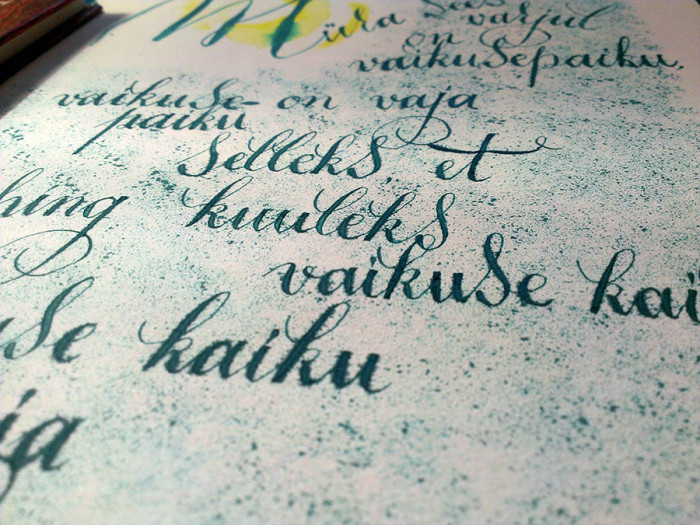 Müra sees varjul
on
vaikusepaiku.
vaikuse- on vaja
paiku
selleks, et
hing kuuleks
vaikuse kai
use kaiku
ja